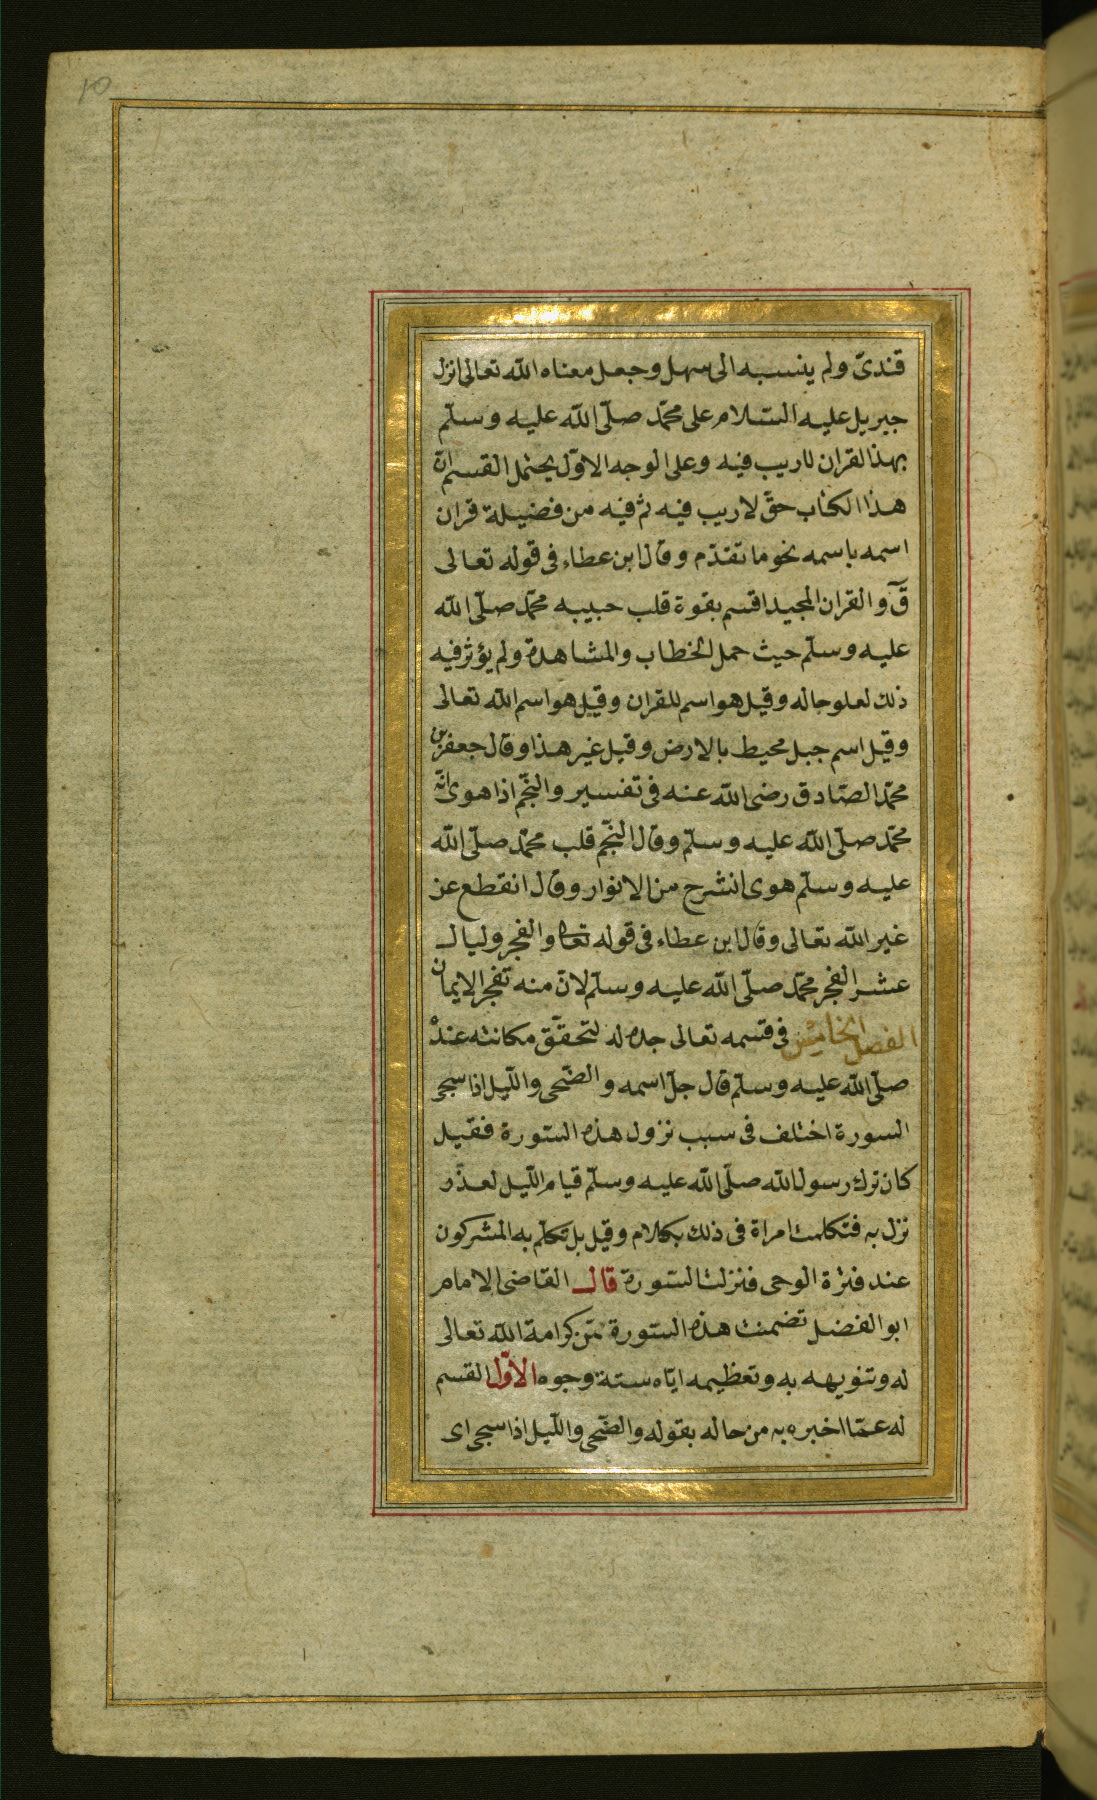 10
قندىّ ولم ينسبه الى سهل وجعل معناه الله تعالى انزل
جبريل عليه السّلام على محمّد صلّى الله عليه وسلّم
بهذا القران لاريب فيه وعلى الوجه الاوّل يحتمل القسم انّ
هذا الكتاب حقّ لاريب فيه ثم فيه من فضيلة قران
اسمه باسمه نحو ما تقدّم وقال ابن عطاء فى قوله تعالى
قٓ والقران المجيد اقسم بقوة قلب حبيبه محمّد صلّى الله
عليه وسلّم حيث حمل الخطاب والمشاهدة ولم يؤثر فيه
ذلك لعلو حاله وقيل هو اسم للقران وقيل هو اسم الله تعالى
وقيل اسم جبل محيط بالارض وقيل غير هذا وقال جعفر بن
محمّد الصّادق رضى الله عنه فى تفسير والنّجم اذا هوى انّه
محمّد صلّى الله عليه وسلّم وقال النّجم قلب محمّد صلّى الله
عليه وسلّم هوى انشرح من الانوار وقال انقطع عن
غير الله تعالى وقال ابن عطاء فى قوله تعالى والفجر وليال
عشر الفجر محمّد صلّى الله عليه وسلّم لانّ منه تفجر الايمان
الفصل الخامس فى قسمه تعالى جده له لتحقّق مكانته عنده
صلّى الله عليه وسلّم قال جلّ اسمه والضّحى واللّيل اذا سجى
السورة اختلف فى سبب نزول هذه السّورة فقيل
كان ترك رسول الله صلّى الله عليه وسلّم قيام اللّيل لعذر
نزل به فتكلمت امراة فى ذلك بكلام وقيل بل تكلّم به المشركون
عند فترة الوحى فنزلت السّورة قال القاضى الامام
ابو الفضل تضمنت هذه السّورة من كرامة الله تعالى
له وتنويهه به وتعظيمه ايّاه ستة وجوه الاوّل القسم
له عمّا اخبره به من حاله بقوله والضّحى واللّيل اذا سجى اى